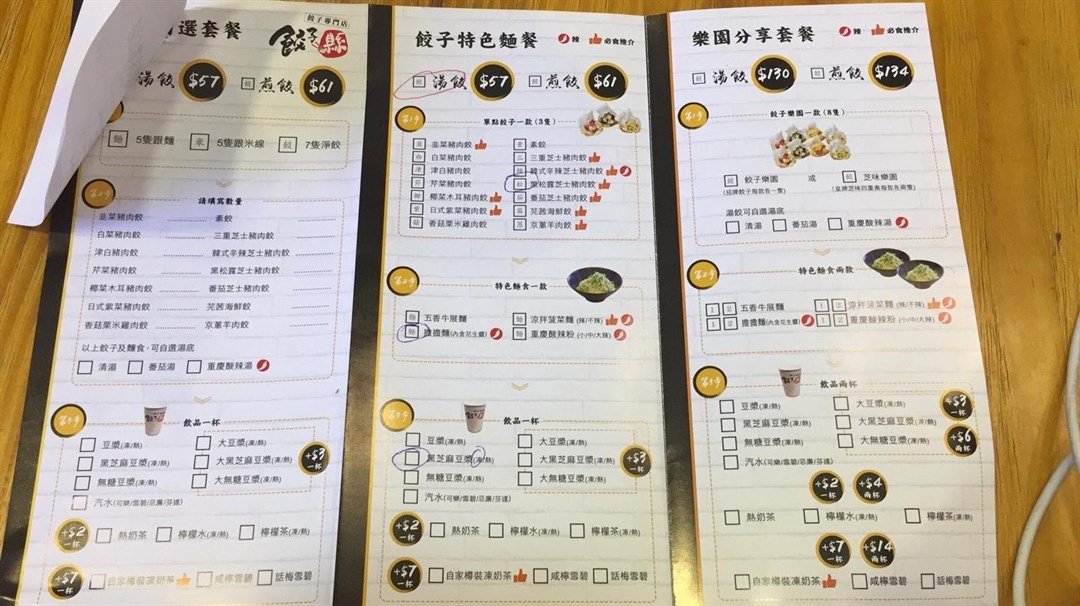 選套餐
餃子專門店
餃子縣
湯餃 $57 煎餃 $61
麵 5隻跟麵 米 5隻跟米線 餃 7隻淨餃
第2步
請填寫數量
韭菜豬肉餃 素餃
白菜豬肉餃 三重芝士豬肉餃
津白豬肉餃 韓式辛辣芝士豬肉餃
芹菜豬肉餃 黑松露芝士豬肉餃
椰菜木耳豬肉餃 番茄芝士豬肉餃
日式紫菜豬肉餃 芫茜海鮮餃
香菇栗米雞肉餃 京蔥羊肉餃
以上餃子及麵食,可自選湯底
清湯 番茄湯 重慶酸辣湯
第3步
飲品一杯
豆漿(凍/熱) 大豆漿(凍/熱)
黑芝麻豆漿(凍/熱) 大黑芝麻豆漿(凍/熱)
無糖豆漿(凍/熱) 大無糖豆漿(凍/熱)
+$3 一杯
汽水(可樂/雪碧/忌廉/芬達)
+$2 一杯 熱奶茶 檸檬水(凍/熱) 檸檬茶(凍/熱)
+$7 一杯 自家樽裝凍奶茶 咸檸雪碧 話梅雪碧
餃子特色麵餐 辣 必食推介
餃 湯餃 $57 餃 煎餃 $61
第1步
單點餃子一款 (3隻)
韭菜豬肉餃 素餃
白菜豬肉餃 三重芝士豬肉餃
津白豬肉餃 韓式辛辣芝士豬肉餃
芹菜豬肉餃 黑松露芝士豬肉餃
椰菜木耳豬肉餃 番茄芝士豬肉餃
日式紫菜豬肉餃 芫茜海鮮餃
香菇栗米雞肉餃 京蔥羊肉餃
第2步
特色麵食一款
麵 五香牛展麵 麵 涼拌菠菜麵 (辣/不辣)
麵 擔擔麵(內含花生醬) 麵 重慶酸辣粉 (小/中/大辣)
第3步
飲品一杯
豆漿(凍/熱) 大豆漿(凍/熱)
黑芝麻豆漿(凍/熱) 大黑芝麻豆漿(凍/熱)
無糖豆漿(凍/熱) 大無糖豆漿(凍/熱)
+$3 一杯
汽水(可樂/雪碧/忌廉/芬達)
+$2 一杯 熱奶茶 檸檬水(凍/熱) 檸檬茶(凍/熱)
+$7 一杯 自家樽裝凍奶茶 咸檸雪碧 話梅雪碧
樂園分享套餐 辣 必食推介
餃 湯餃 $130 餃 煎餃 $134
第1步
餃子樂園一款 (8隻)
餃 餃子樂園 或 餃 芝味樂園
(招牌餃子每款各一隻) (皇牌芝味四重奏每款各兩隻)
湯餃可自選湯底
清湯 番茄湯 重慶酸辣湯
第2步
特色麵食兩款
1 2 五香牛展麵 1 2 涼拌菠菜麵 (辣/不辣)
1 2 擔擔麵(內含花生醬) 1 2 重慶酸辣粉 (小/中/大辣)
第3步
飲品兩杯
豆漿(凍/熱) 大豆漿(凍/熱)
黑芝麻豆漿(凍/熱) 大黑芝麻豆漿(凍/熱)
無糖豆漿(凍/熱) 大無糖豆漿(凍/熱)
+$3 一杯
+$6 兩杯
汽水(可樂/雪碧/忌廉/芬達)
+$2 一杯 +$4 兩杯
熱奶茶 檸檬水(凍/熱) 檸檬茶(凍/熱)
+$7 一杯 +$14 兩杯
自家樽裝凍奶茶 咸檸雪碧 話梅雪碧